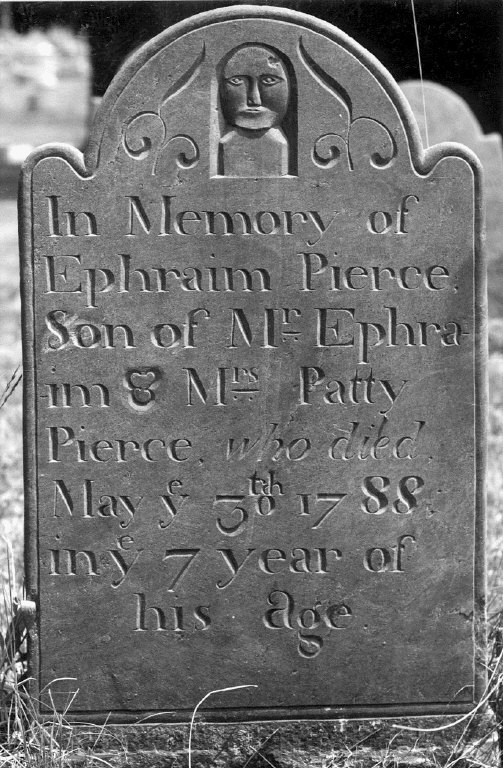 In Memory of
Ephraim Pierce,
Son of Mr Ephra-
im & Mrs Patty
Pierce, who died,
May ye 3th 1788,
in ye 7 year of
his age.